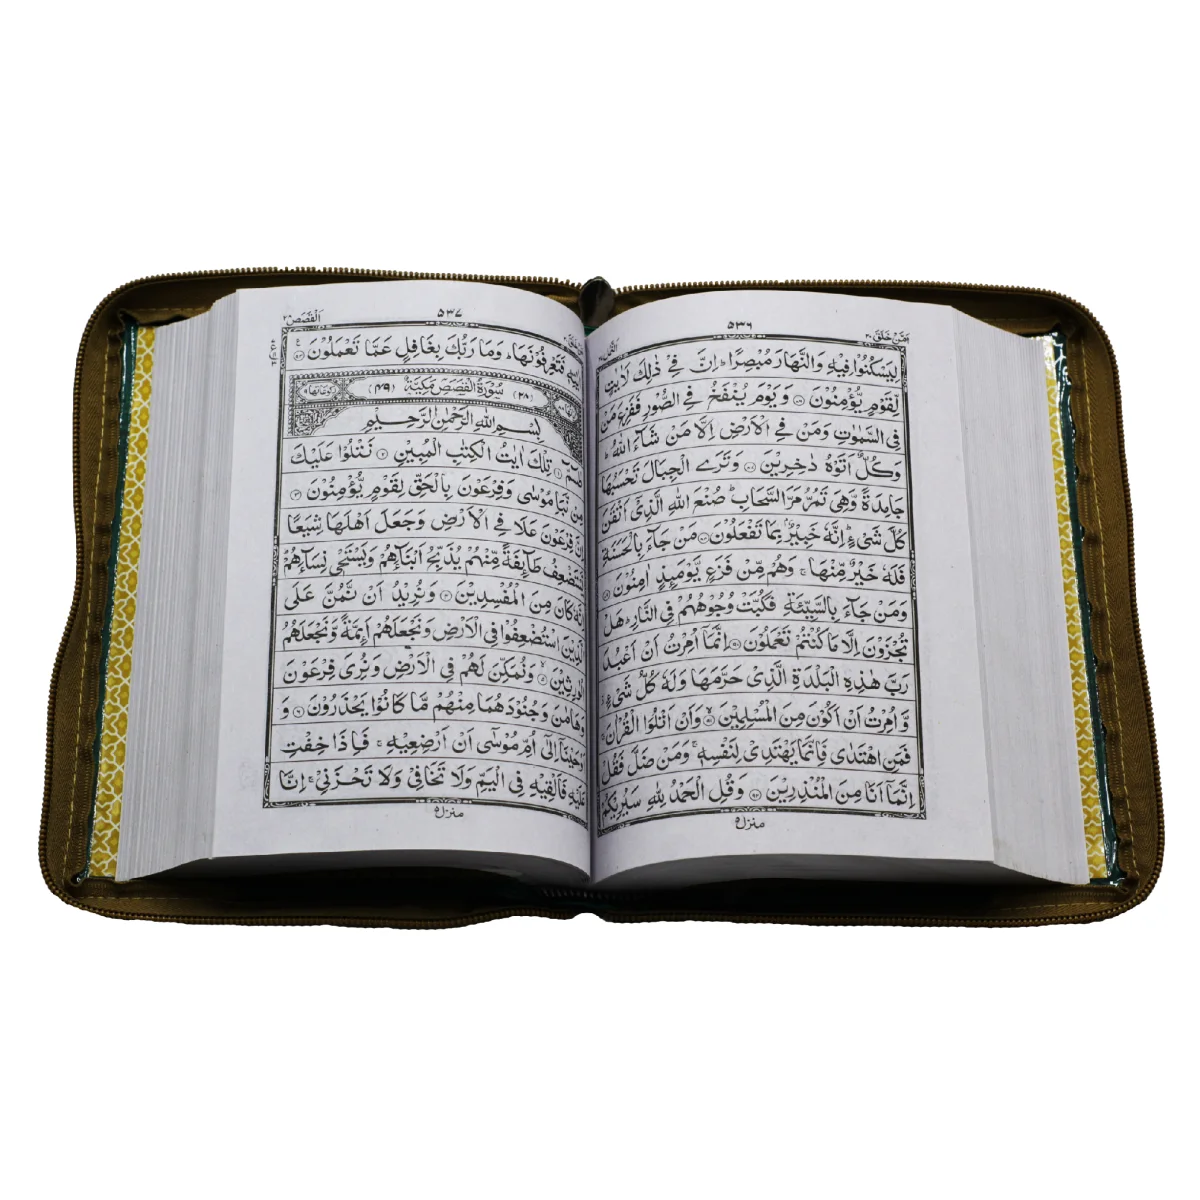 امّن خلق ٢٠
٥٣٦
النّمل ٢٧
لِيَسْكُنُوْا فِيْهِ وَالنَّهَارَ مُبْصِرًا ؕ اِنَّ فِيْ ذٰلِكَ لَاٰيٰتٍ
لِّقَوْمٍ يُّؤْمِنُوْنَ ۝٨٦ وَيَوْمَ يُنْفَخُ فِي الصُّوْرِ فَفَزِعَ مَنْ
فِي السَّمٰوٰتِ وَمَنْ فِي الْاَرْضِ اِلَّا مَنْ شَآءَ اللّٰهُ ؕ
وَكُلٌّ اَتَوْهُ دٰخِرِيْنَ ۝٨٧ وَتَرَى الْجِبَالَ تَحْسَبُهَا
جَامِدَةً وَّهِيَ تَمُرُّ مَرَّ السَّحَابِ ؕ صُنْعَ اللّٰهِ الَّذِيْٓ اَتْقَنَ
كُلَّ شَيْءٍ ؕ اِنَّهٗ خَبِيْرٌۢ بِمَا تَفْعَلُوْنَ ۝٨٨ مَنْ جَآءَ بِالْحَسَنَةِ
فَلَهٗ خَيْرٌ مِّنْهَا ۚ وَهُمْ مِّنْ فَزَعٍ يَّوْمَئِذٍ اٰمِنُوْنَ ۝٨٩
وَمَنْ جَآءَ بِالسَّيِّئَةِ فَكُبَّتْ وُجُوْهُهُمْ فِي النَّارِ ؕ هَلْ
تُجْزَوْنَ اِلَّا مَا كُنْتُمْ تَعْمَلُوْنَ ۝٩٠ اِنَّمَآ اُمِرْتُ اَنْ اَعْبُدَ
رَبَّ هٰذِهِ الْبَلْدَةِ الَّذِيْ حَرَّمَهَا وَلَهٗ كُلُّ شَيْءٍ ؗ
وَّاُمِرْتُ اَنْ اَكُوْنَ مِنَ الْمُسْلِمِيْنَ ۝٩١ وَاَنْ اَتْلُوَا الْقُرْاٰنَ ۚ
فَمَنِ اهْتَدٰى فَاِنَّمَا يَهْتَدِيْ لِنَفْسِهٖ ۚ وَمَنْ ضَلَّ فَقُلْ
اِنَّمَآ اَنَا مِنَ الْمُنْذِرِيْنَ ۝٩٢ وَقُلِ الْحَمْدُ لِلّٰهِ سَيُرِيْكُمْ
منزل ٥
٥٣٧
القصص ٢٨
اٰيٰتِهٖ فَتَعْرِفُوْنَهَا ؕ وَمَا رَبُّكَ بِغَافِلٍ عَمَّا تَعْمَلُوْنَ ۝٩٣
(٢٨) سُوْرَةُ الْقَصَصِ مَكِّيَّةٌ (٤٩)
بِسْمِ اللّٰهِ الرَّحْمٰنِ الرَّحِيْمِ
طٰسٓمّٓ ۝١ تِلْكَ اٰيٰتُ الْكِتٰبِ الْمُبِيْنِ ۝٢ نَتْلُوْا عَلَيْكَ
مِنْ نَّبَاِ مُوْسٰى وَفِرْعَوْنَ بِالْحَقِّ لِقَوْمٍ يُّؤْمِنُوْنَ ۝٣
اِنَّ فِرْعَوْنَ عَلَا فِي الْاَرْضِ وَجَعَلَ اَهْلَهَا شِيَعًا
يَّسْتَضْعِفُ طَآئِفَةً مِّنْهُمْ يُذَبِّحُ اَبْنَآءَهُمْ وَيَسْتَحْيٖ نِسَآءَهُمْ ؕ
اِنَّهٗ كَانَ مِنَ الْمُفْسِدِيْنَ ۝٤ وَنُرِيْدُ اَنْ نَّمُنَّ عَلَى
الَّذِيْنَ اسْتُضْعِفُوْا فِي الْاَرْضِ وَنَجْعَلَهُمْ اَئِمَّةً وَّنَجْعَلَهُمُ
الْوٰرِثِيْنَ ۝٥ وَنُمَكِّنَ لَهُمْ فِي الْاَرْضِ وَنُرِيَ فِرْعَوْنَ
وَهَامٰنَ وَجُنُوْدَهُمَا مِنْهُمْ مَّا كَانُوْا يَحْذَرُوْنَ ۝٦ وَ
اَوْحَيْنَآ اِلٰٓى اُمِّ مُوْسٰٓى اَنْ اَرْضِعِيْهِ ۚ فَاِذَا خِفْتِ
عَلَيْهِ فَاَلْقِيْهِ فِي الْيَمِّ وَلَا تَخَافِيْ وَلَا تَحْزَنِيْ ۚ اِنَّا
منزل ٥